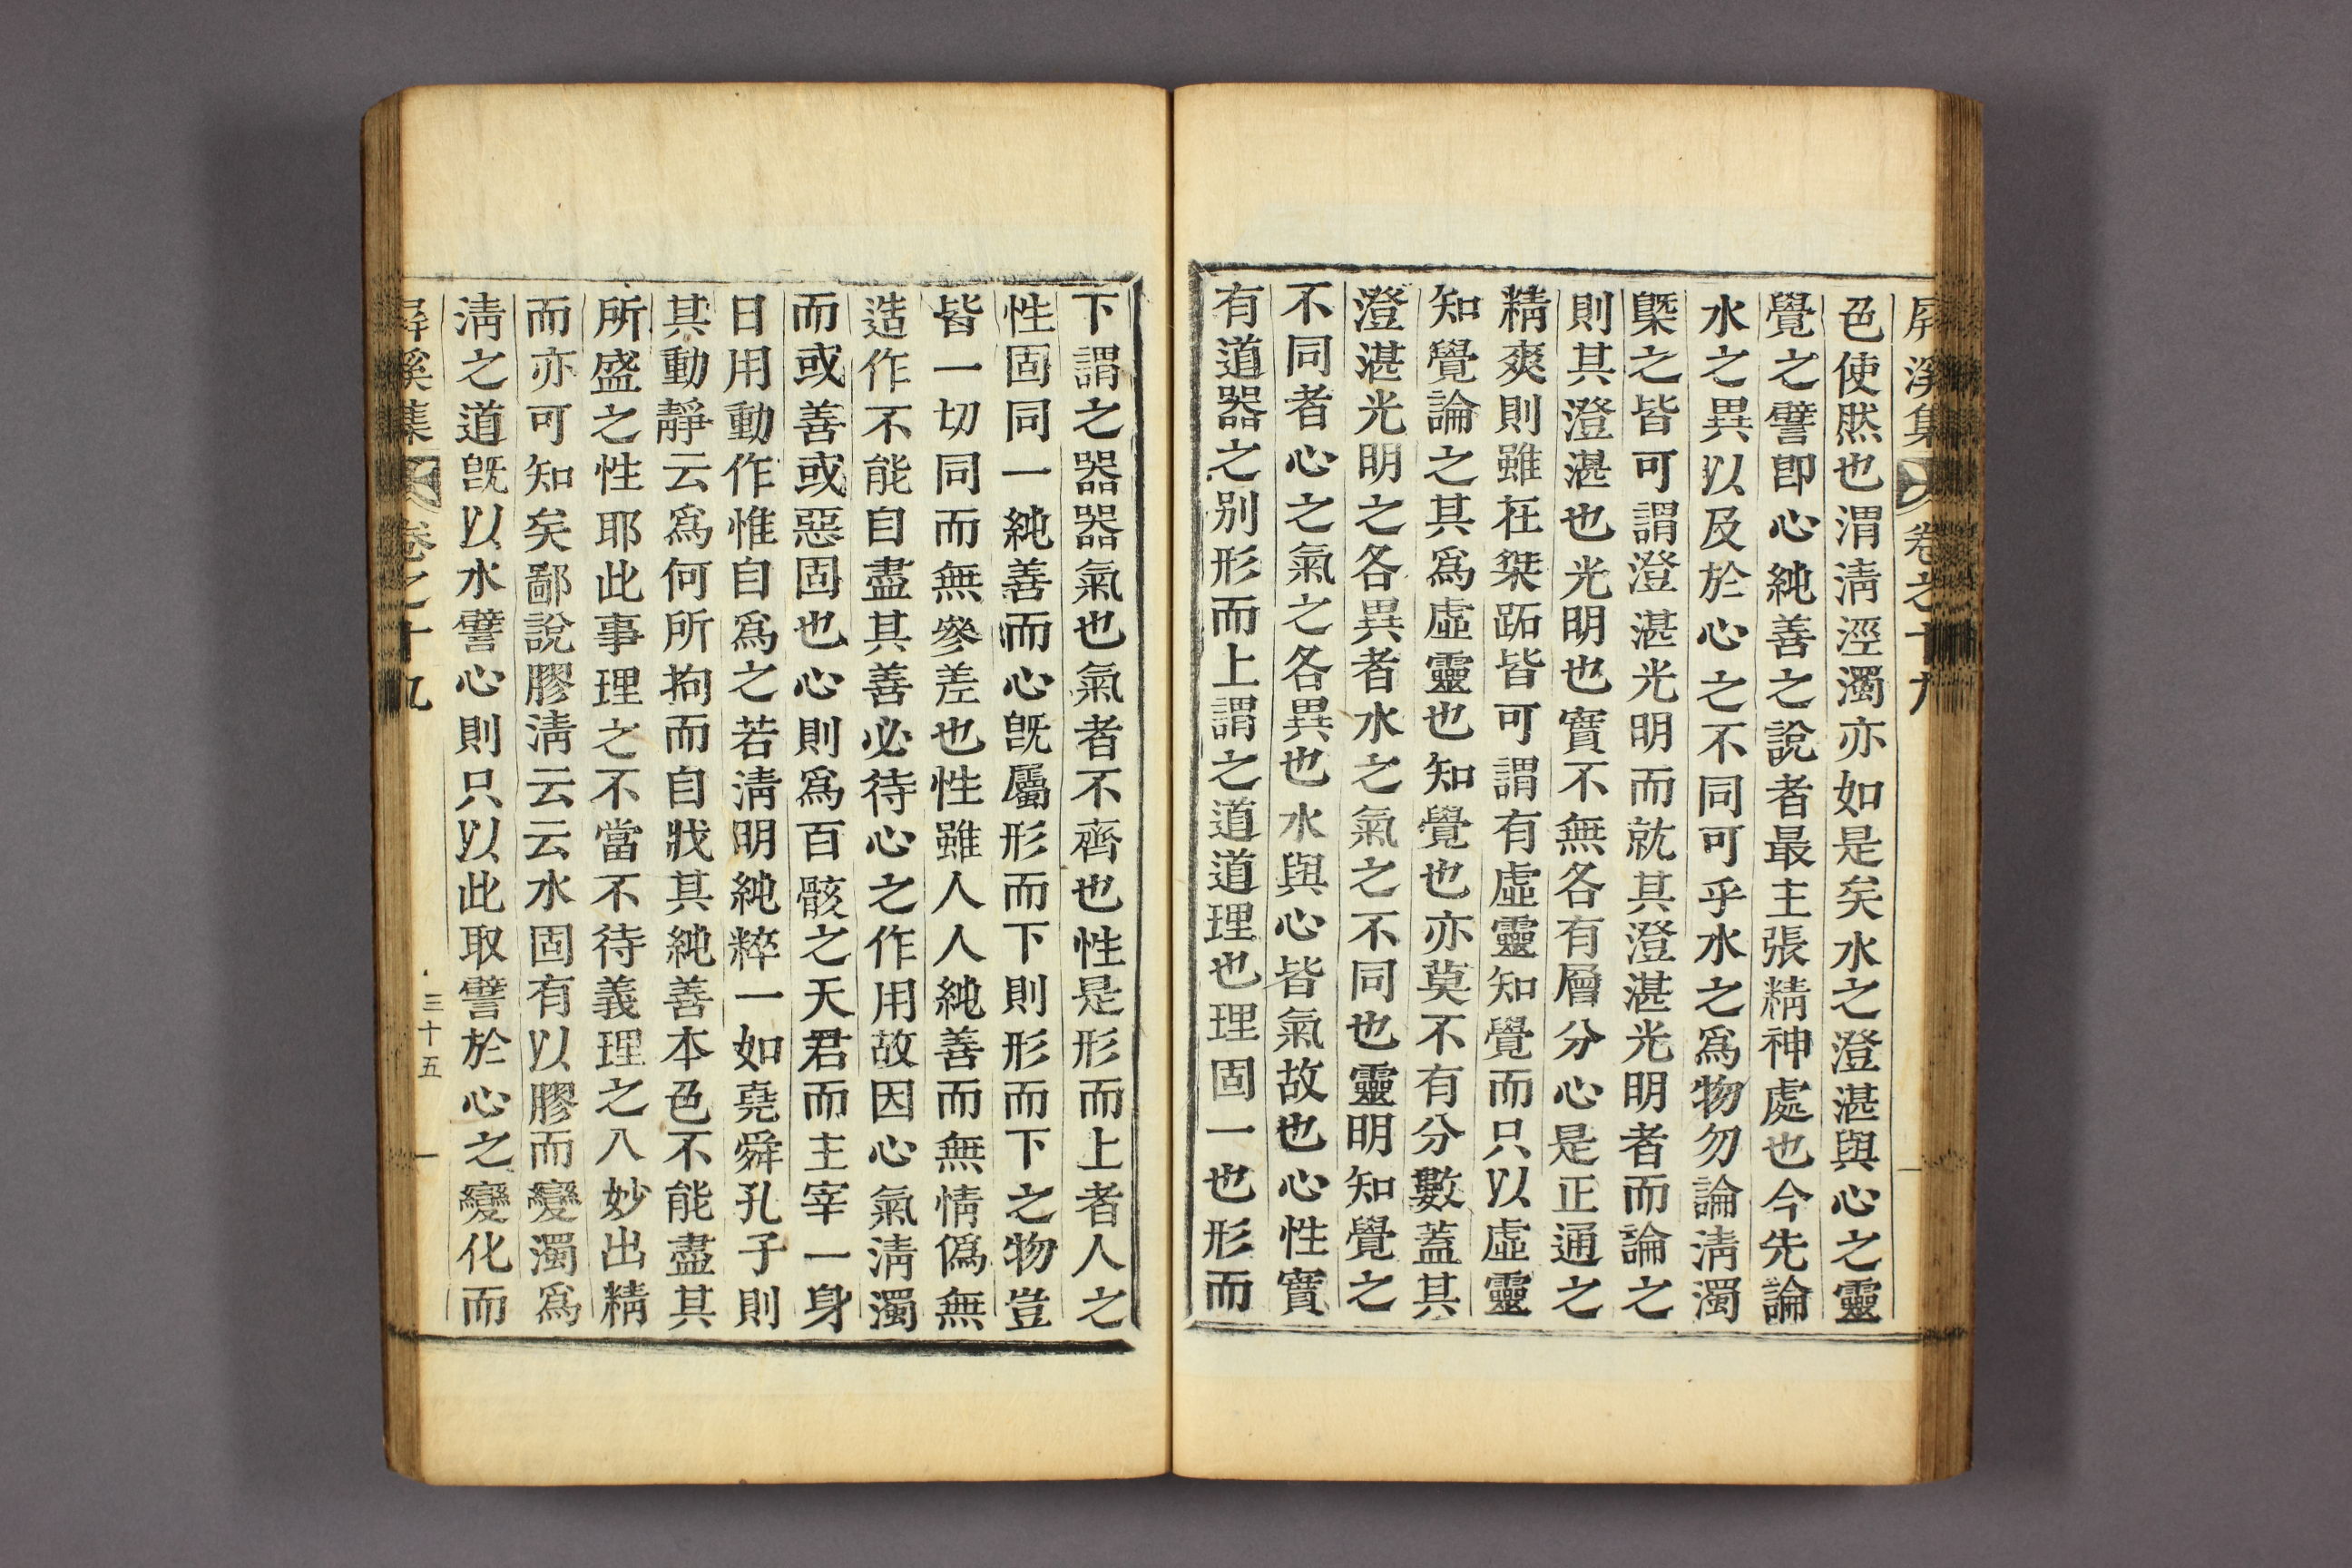 屛溪集 卷之十九
色使然也渭淸涇濁亦如是矣水之澄湛與心之靈
覺之譬卽心純善之說者最主張精神處也今先論
水之異以及於心之不同可乎水之爲物勿論淸濁
槩之皆可謂澄湛光明而就其澄湛光明者而論之
則其澄湛也光明也實不無各有層分心是正通之
精爽則雖在桀跖皆可謂有虛靈知覺而只以虛靈
知覺論之其爲虛靈也知覺也亦莫不有分數蓋其
澄湛光明之各異者水之氣之不同也靈明知覺之
不同者心之氣之各異也水與心皆氣故也心性實
有道器之別形而上謂之道道理也理固一也形而
下謂之器器氣也氣者不齊也性是形而上者人之
性固同一純善而心旣屬形而下則形而下之物豈
皆一切同而無參差也性雖人人純善而無情僞無
造作不能自盡其善必待心之作用故因心氣淸濁
而或善或惡固也心則爲百骸之天君而主宰一身
日用動作惟自爲之若淸明純粹一如堯舜孔子則
其動靜云爲何所拘而自戕其純善本色不能盡其
所盛之性耶此事理之不當不待義理之八妙出精
而亦可知矣鄙說膠淸云云水固有以膠而變濁爲
淸之道旣以水譬心則只以此取譬於心之變化而
屛溪集 卷之十九 三十五